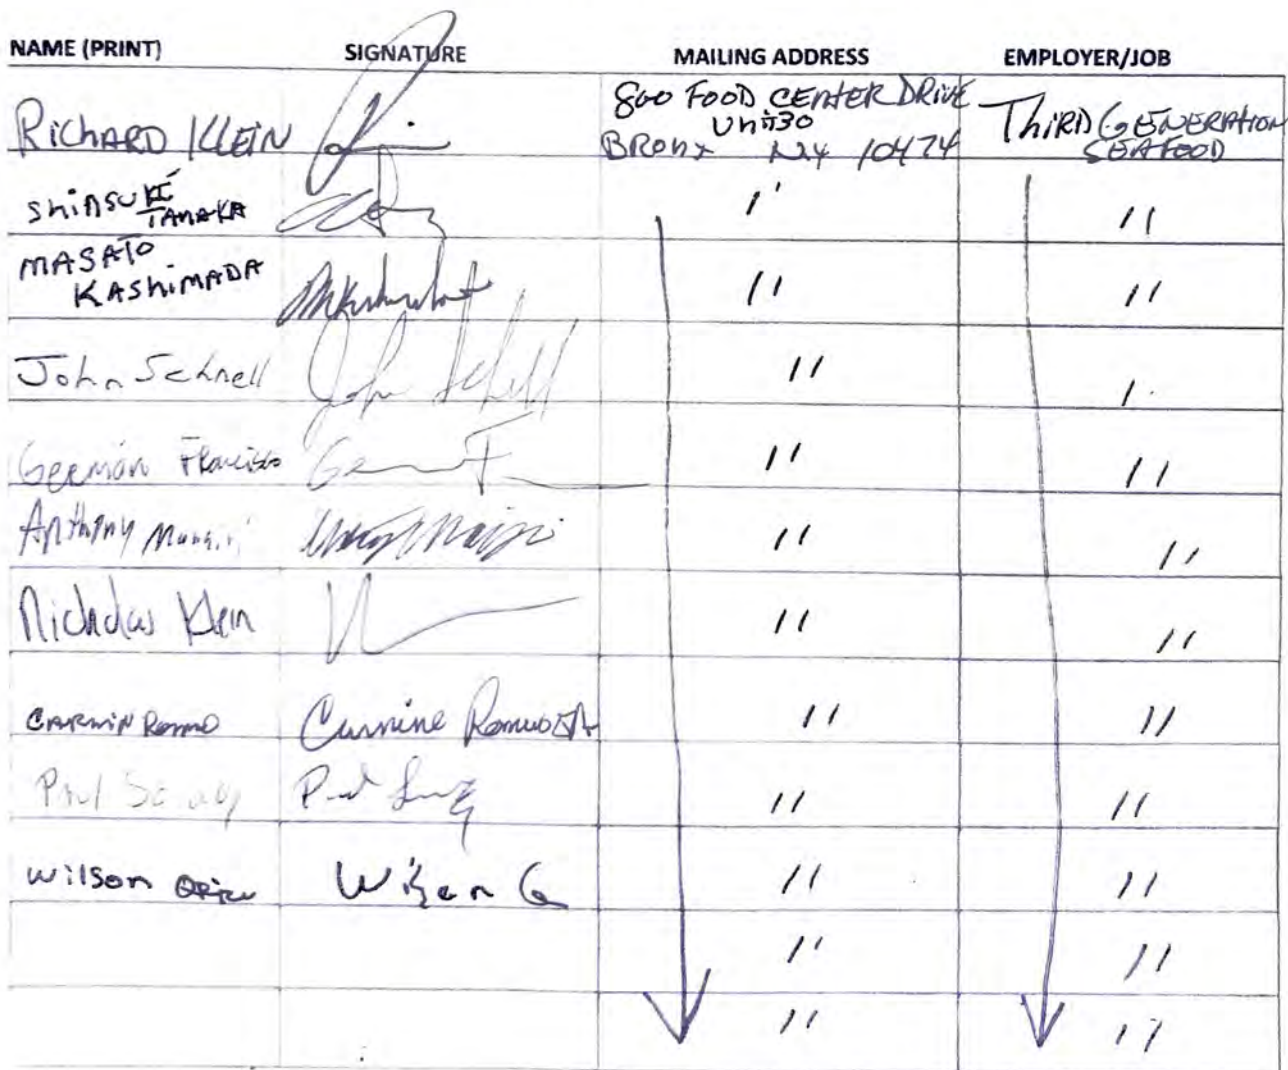 NAME (PRINT) SIGNATURE MAILING ADDRESS EMPLOYER/JOB
RICHARD KLEIN 800 FOOD CENTER DRIVE
Unit 30
BRONX NY 10474 THIRD GENERATION
SEAFOOD
SHINSUKE
TANAKA " "
MASATO
KASHIMADA " "
John Schnell John Schnell " "
Germán Francisco " "
Anthony " "
Nicholas Klein " "
Carmine " "
Paul Paul " "
Wilson Wilson G " "
" "
" "